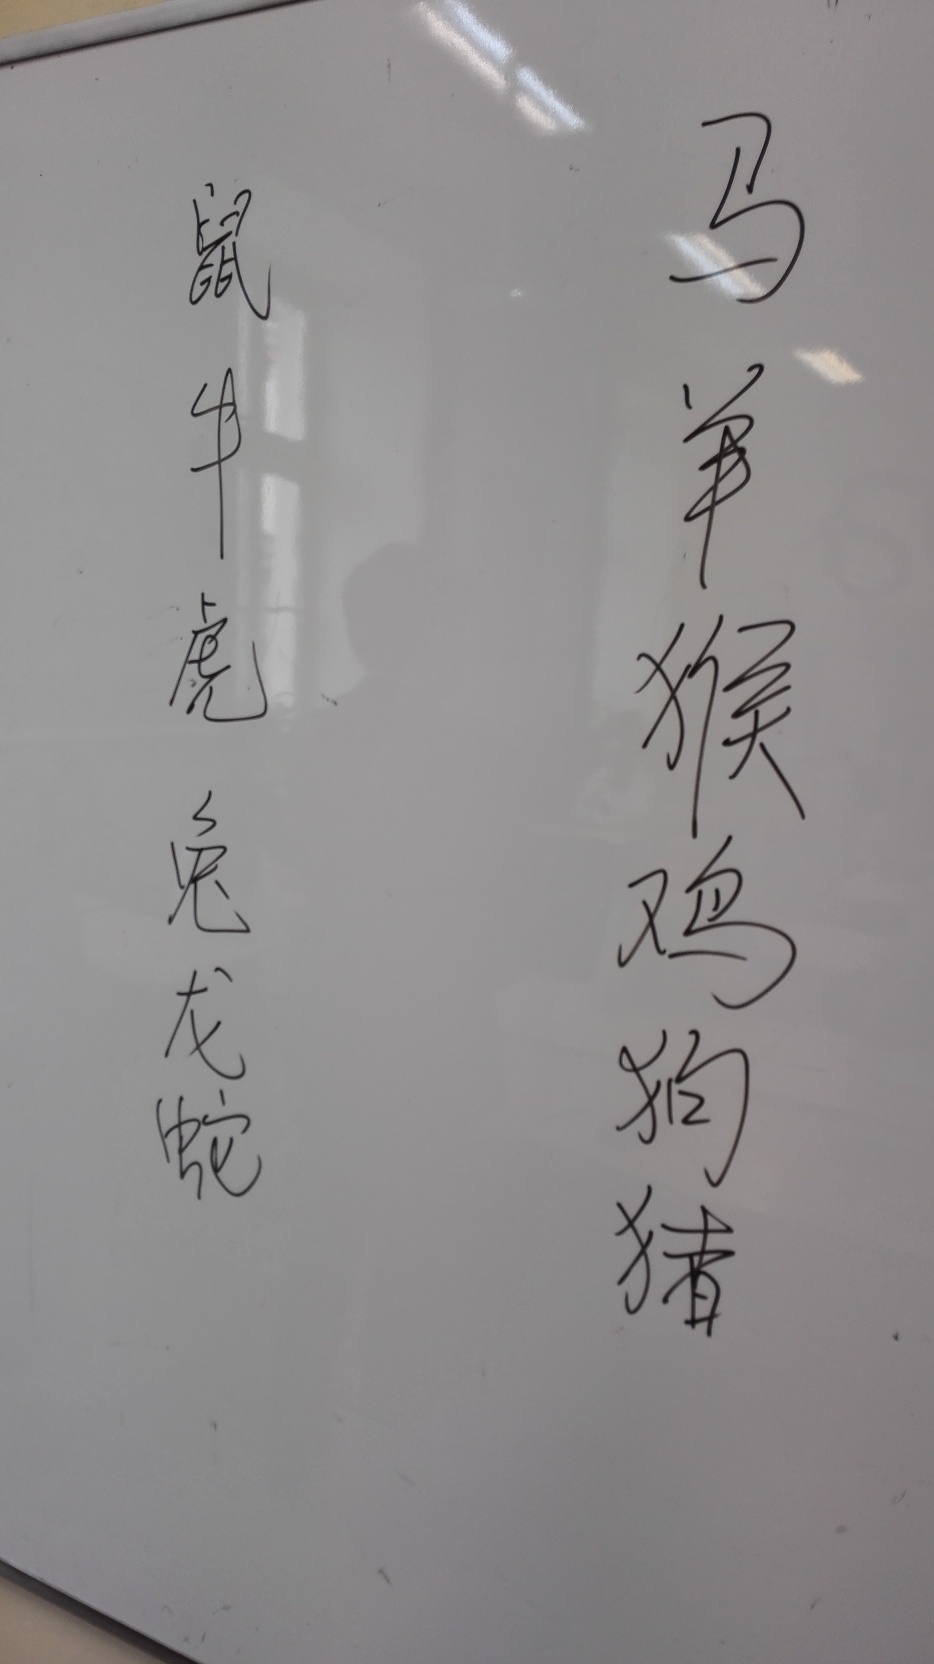 鼠牛虎兔龙蛇
马羊猴鸡狗猪